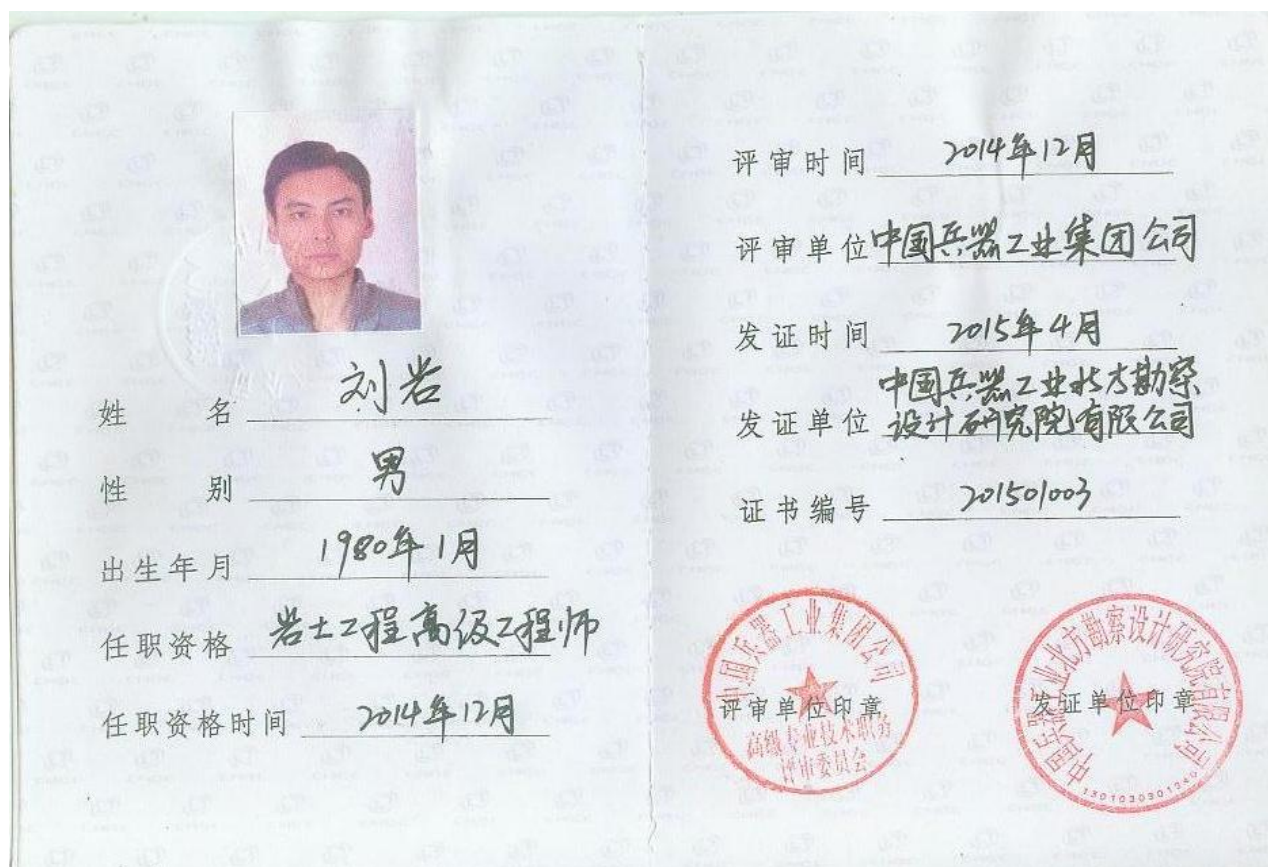 姓名 刘岩
性别 男
出生年月 1980年1月
任职资格 岩土工程高级工程师
任职资格时间 2014年12月
评审时间 2014年12月
评审单位 中国兵器工业集团公司
发证时间 2015年4月
发证单位 中国兵器工业北方勘察
设计研究院有限公司
证书编号 201501003
中国兵器工业集团公司
评审单位印章
高级专业技术职务
评审委员会
中国兵器工业北方勘察设计研究院有限公司
发证单位印章